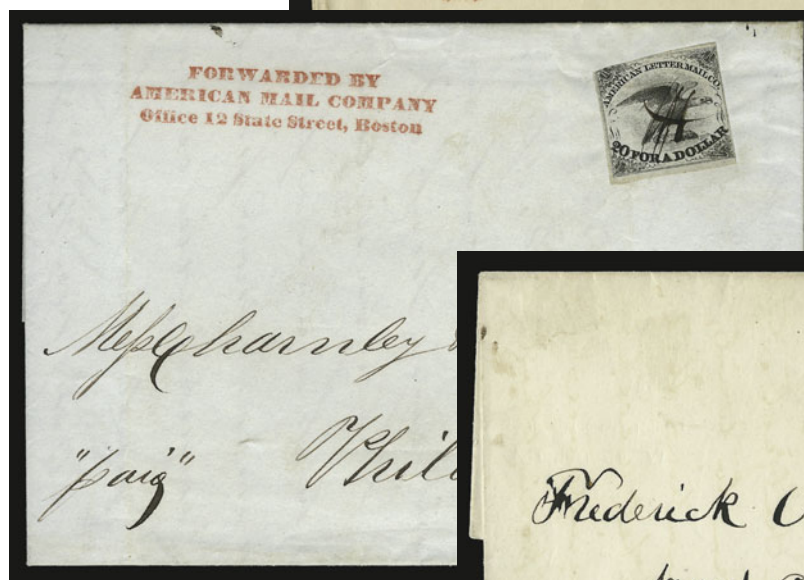 FORWARDED BY
AMERICAN MAIL COMPANY
Office 12 State Street, Boston
AMERICAN LETTER MAIL CO.
20 FOR A DOLLAR
Charnley
"paid"
Phil
Frederick